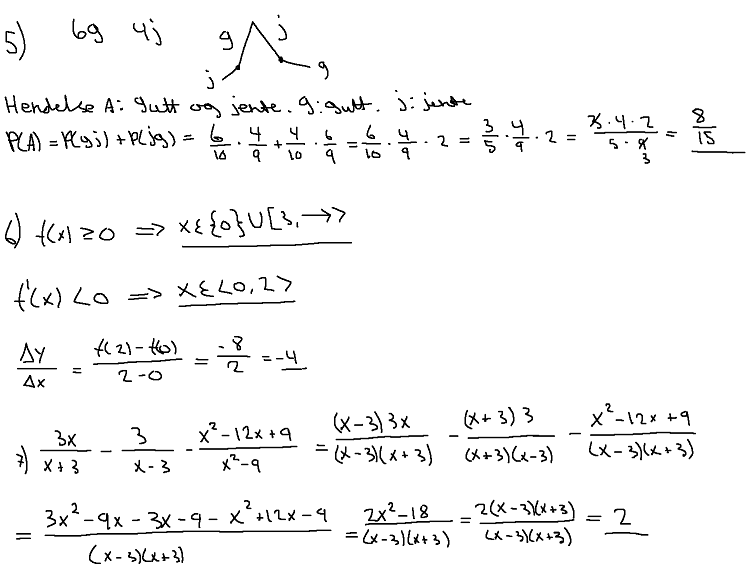 5) 6g 4j
g j
j g
Hendelse A: gutt og jente. g: gutt. j: jente
P(A) = P(gj) + P(jg) = 6/10 · 4/9 + 4/10 · 6/9 = 6/10 · 4/9 · 2 = 3/5 · 4/9 · 2 = (3·4·2)/(5·9) 3 = 8/15
6) f(x) ≥ 0 => x ε {0} U [3, →>
f'(x) < 0 => x ε <0, 2>
Δy/Δx = (f(2) - f(0))/(2 - 0) = -8/2 = -4
7) 3x/(x+3) - 3/(x-3) - (x²-12x+9)/(x²-9) = (x-3)3x/((x-3)(x+3)) - (x+3)3/((x+3)(x-3)) - (x²-12x+9)/((x-3)(x+3))
= (3x²-9x-3x-9-x²+12x-9)/((x-3)(x+3)) = (2x²-18)/((x-3)(x+3)) = 2(x-3)(x+3)/((x-3)(x+3)) = 2